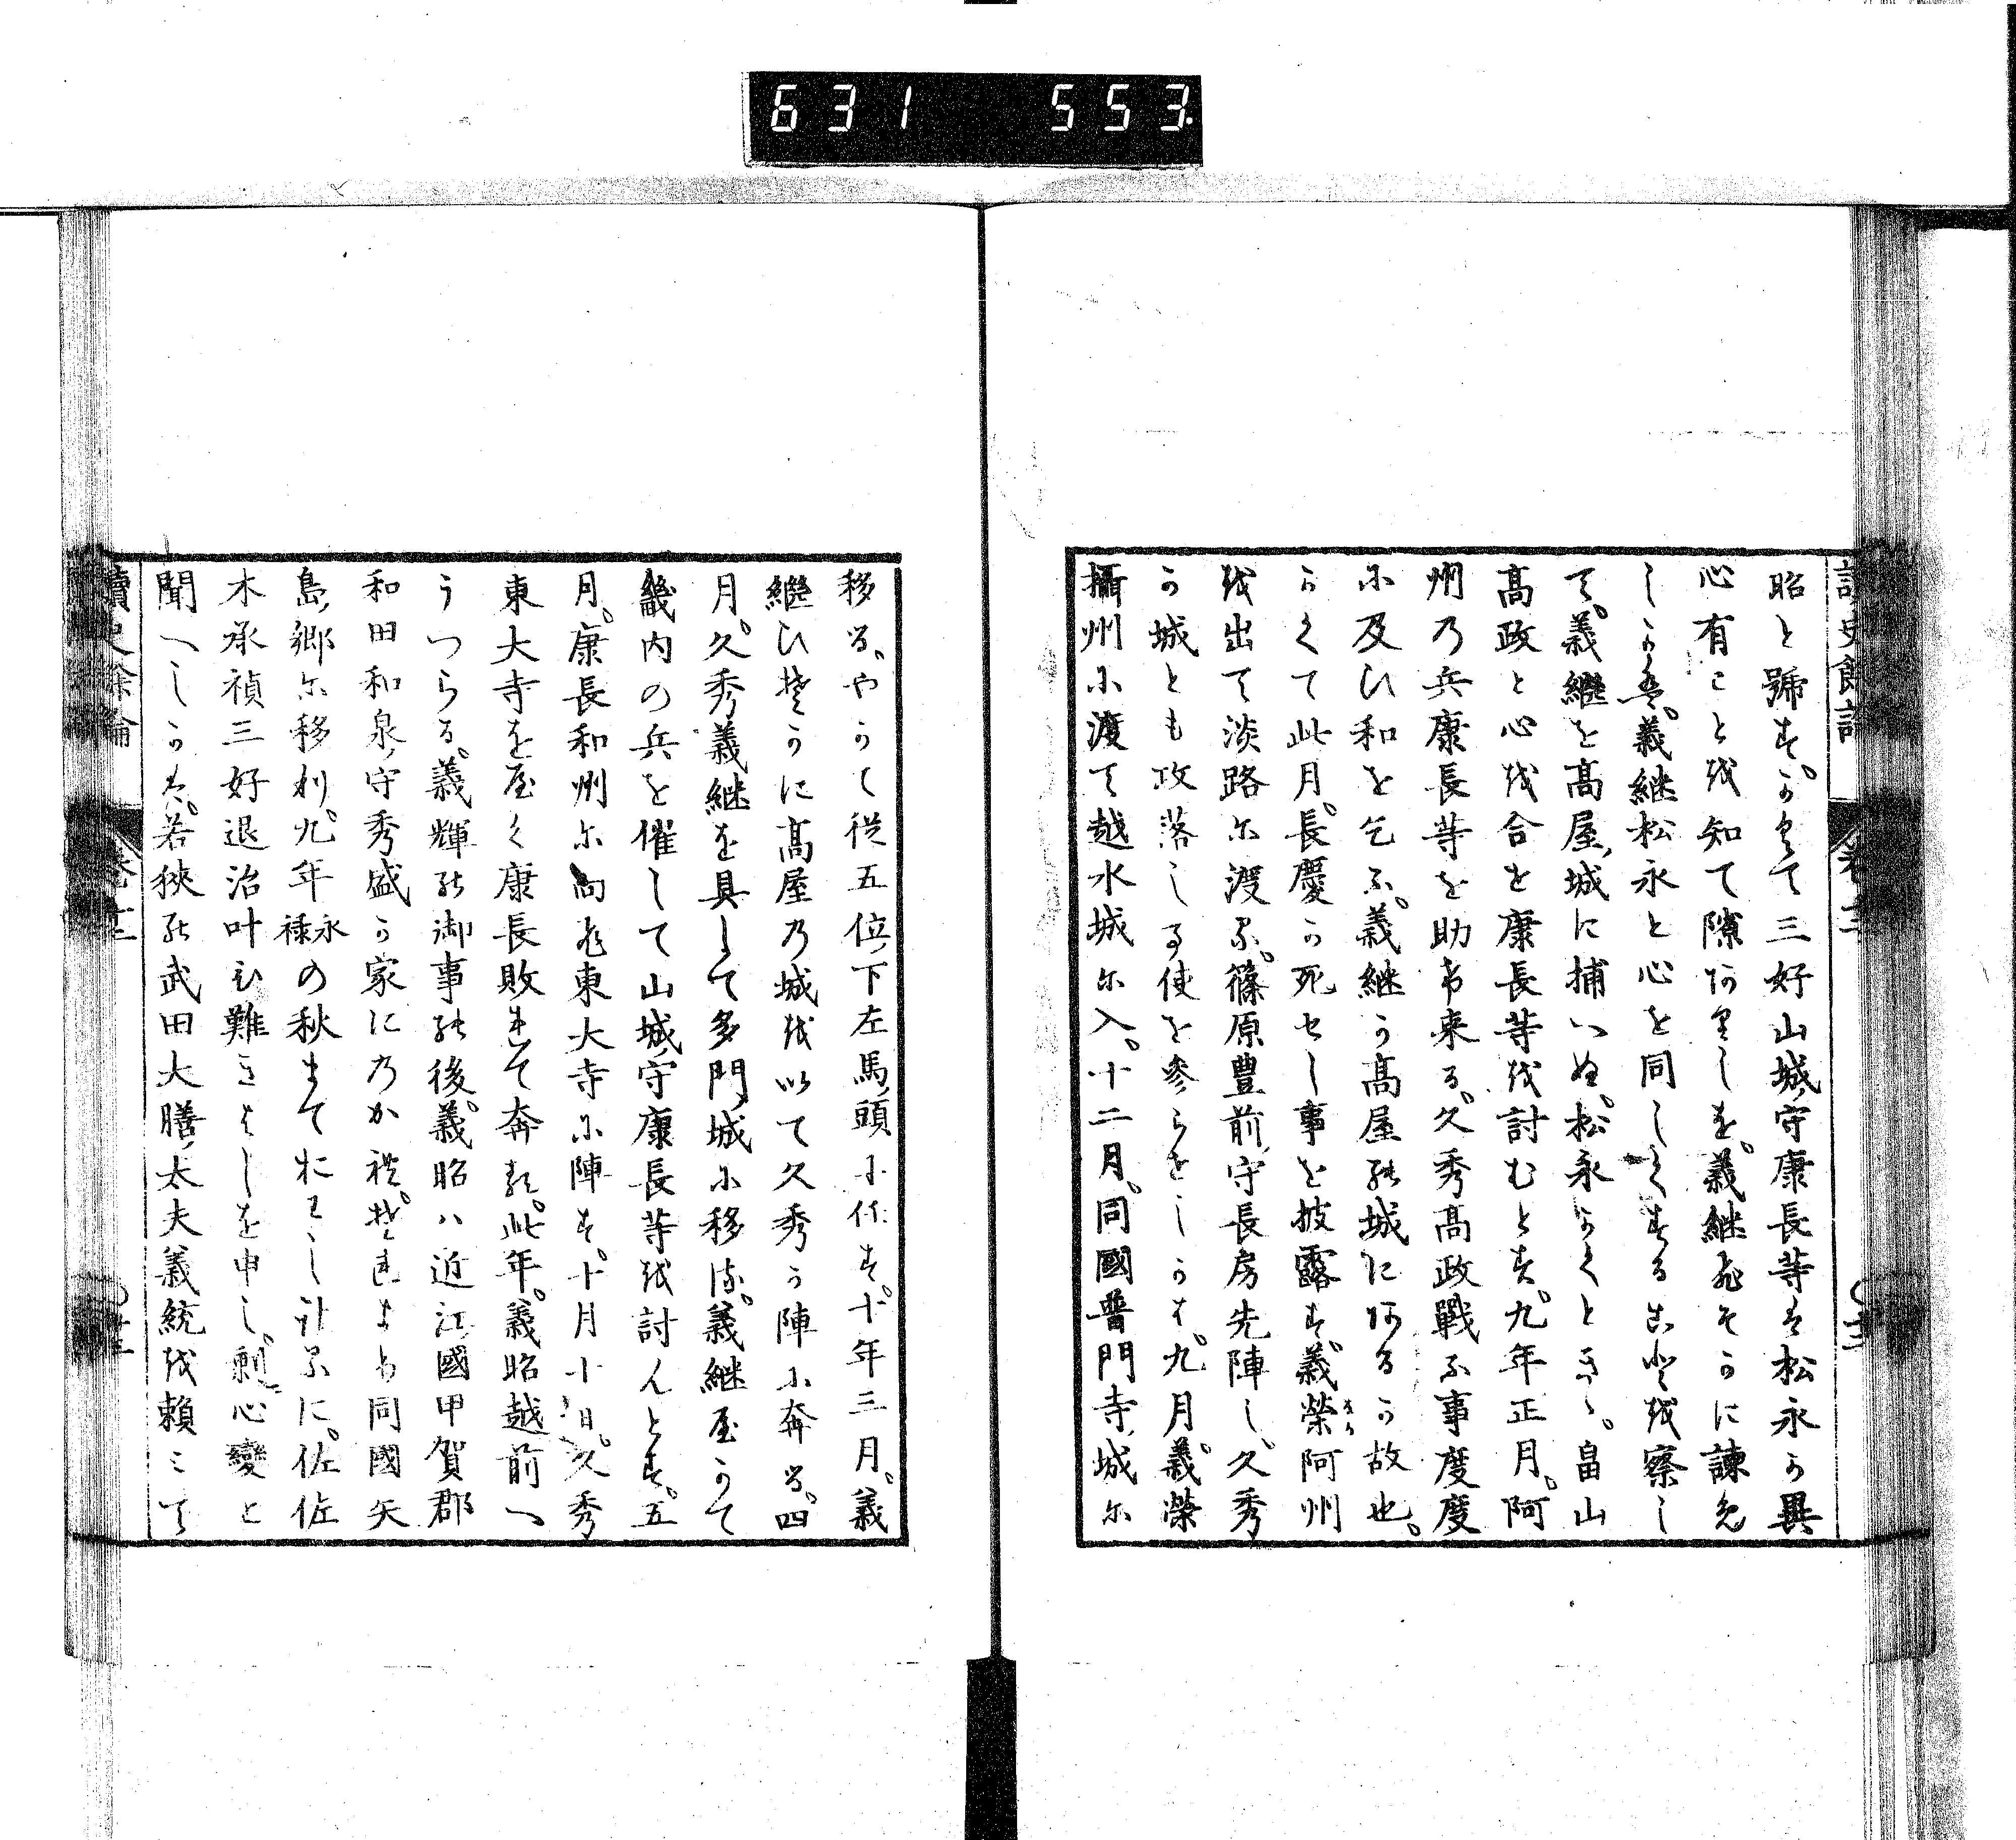 631 553
讀史餘論
昭と號す。かくて三好山城守康長等は松永か異
心有ことを知て隙ありしを。義継ひそかに諫免
しかと。義継松永と心を同しくするよしを察し
て。義繼を高屋城に捕へぬ。松永かくときゝ。畠山
高政と心を合せ康長等を討むとす。九年正月。阿
州の兵康長等を助け来る。久秀高政戰ふ事度度
に及ひ和を乞ふ。義継か高屋の城にあるか故也。
かくて此月。長慶か死せし事を披露す。義榮阿州
を出て淡路に渡る。篠原豊前守長房先陣し。久秀
か城とも攻落しる使を參らせしかは。九月。義榮
攝州に渡て越水城に入。十二月。同國普門寺城に
移る。やかて従五位下左馬頭に任す。十年三月。義
継ひそかに高屋の城を以て久秀か陣に奔る。四
月。久秀義継を具して多門城に移る。義継屋かて
畿内の兵を催して山城守康長等を討んとす。五
月。康長和州に向ひ東大寺に陣す。十月十日。久秀
東大寺を屋く康長敗れて奔る。此年。義昭越前へ
うつらる。義輝の御事の後。義昭ハ近江國甲賀郡
和田和泉守秀盛か家にのか禮。それより同國矢
島郷に移り。九年永禄の秋まておはし計るに。佐佐
木承禎三好退治叶ひ難きよしを申し。剰心變と
聞へしかは。若狹の武田大膳太夫義統を頼ミて
讀史餘論 巻十二